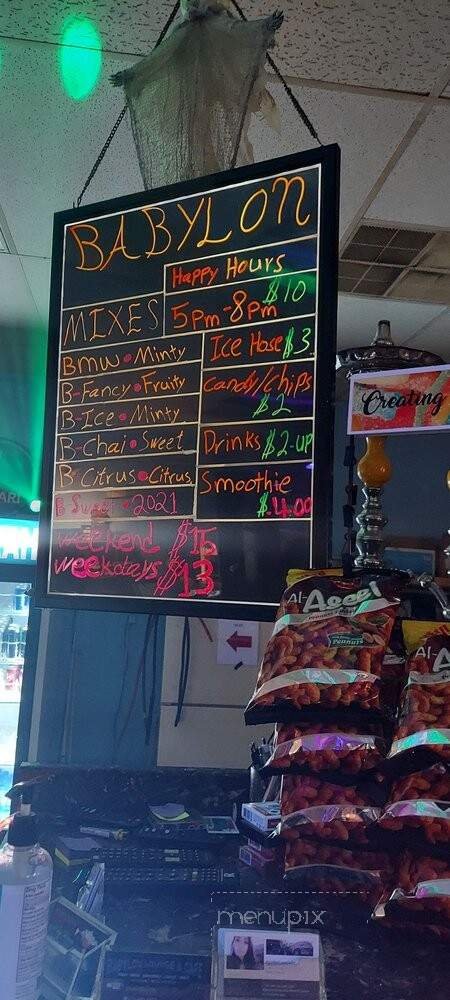 BABYLON
Happy Hours
5pm-8pm $10
MIXES
Bmw • Minty
B-Fancy • Fruity
B-Ice • Minty
B-Chai • Sweet
B-Citrus • Citrus
B Sweet • 2021
Ice Hose $3
Candy/Chips
$2
Drinks $2-up
Smoothie
$4.00
weekend $15
weekdays $13
Creating
Al-Ageel
Peanuts
Al-A
menupix